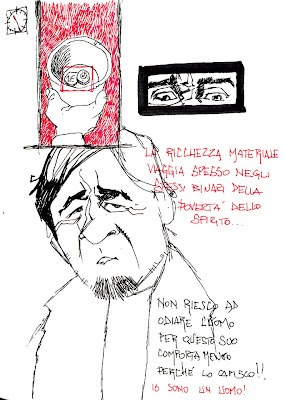 LA RICCHEZZA MATERIALE
VIAGGIA SPESSO NEGLI
STESSI BINARI DELLA
POVERTÀ DELLO
SPIRITO...
NON RIESCO AD
ODIARE L'UOMO
PER QUESTO SUO
COMPORTAMENTO
PERCHÉ LO CAPISCO!!
IO SONO UN UOMO!